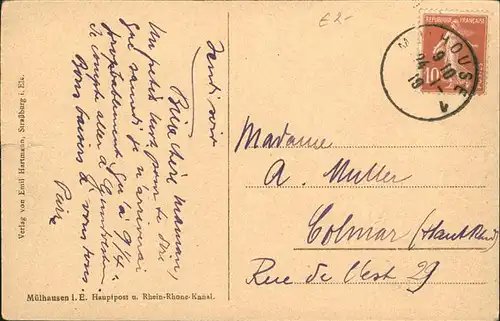 £ 2-
RÉPUBLIQUE FRANÇAISE
10
MULHOUSE
9 10
24 - 1
19
Jeudi soir
Bien chère maman,
Un petit mot pour te dire
que samedi je n'arriverai
probablement qu'à 9 1/4 h
Je compte aller à
Bons baisers à vous tous.
Madame
A. Muller
Colmar (Haut Rhin)
Rue de l'Est 29
Verlag von Emil Hartmann, Straßburg i. Els.
Mülhausen i. E. Hauptpost u. Rhein-Rhone-Kanal.